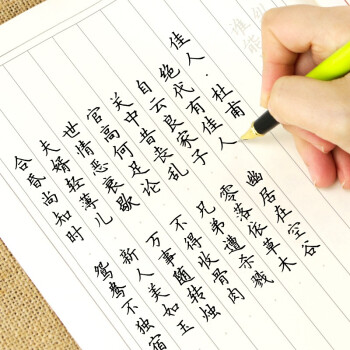 佳人·杜甫
绝代有佳人
幽居在空谷
自云良家子
零落依草木
关中昔丧乱
兄弟遭杀戮
官高何足论
不得收骨肉
世情恶衰歇
万事随转烛
夫婿轻薄儿
新人美如玉
合昏尚知时
鸳鸯不独宿